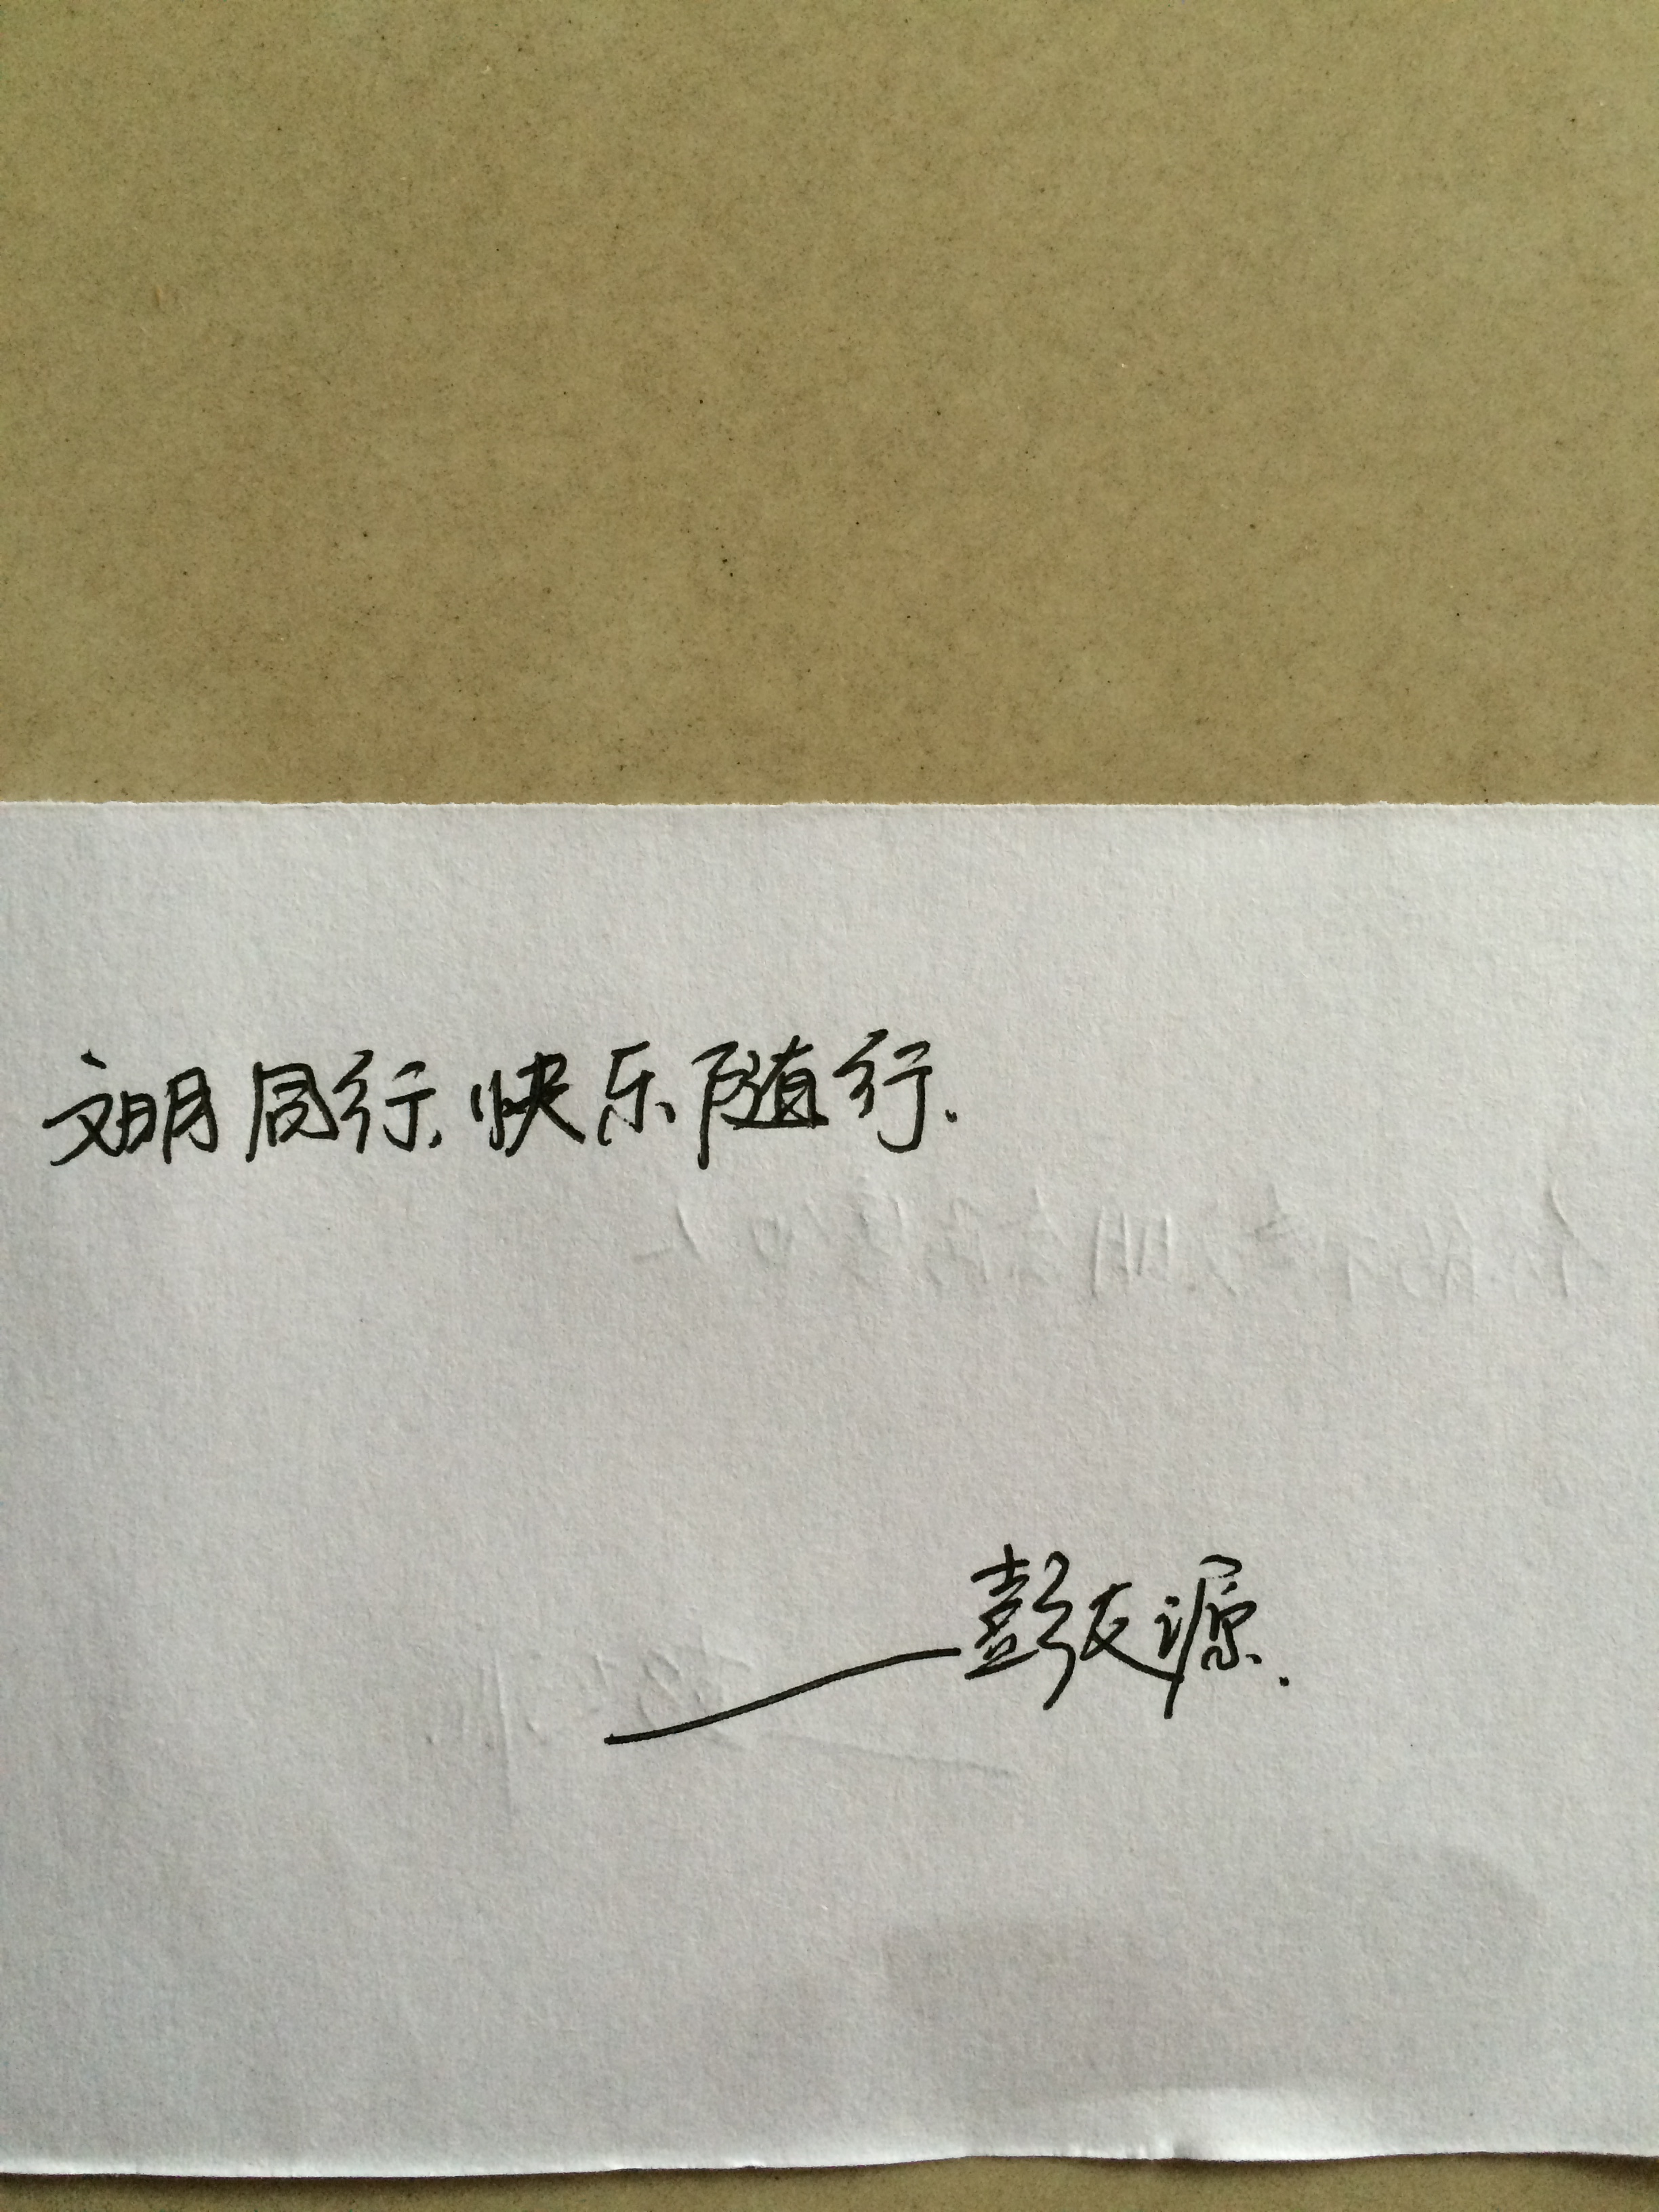 文明同行,快乐随行.
——彭友源.